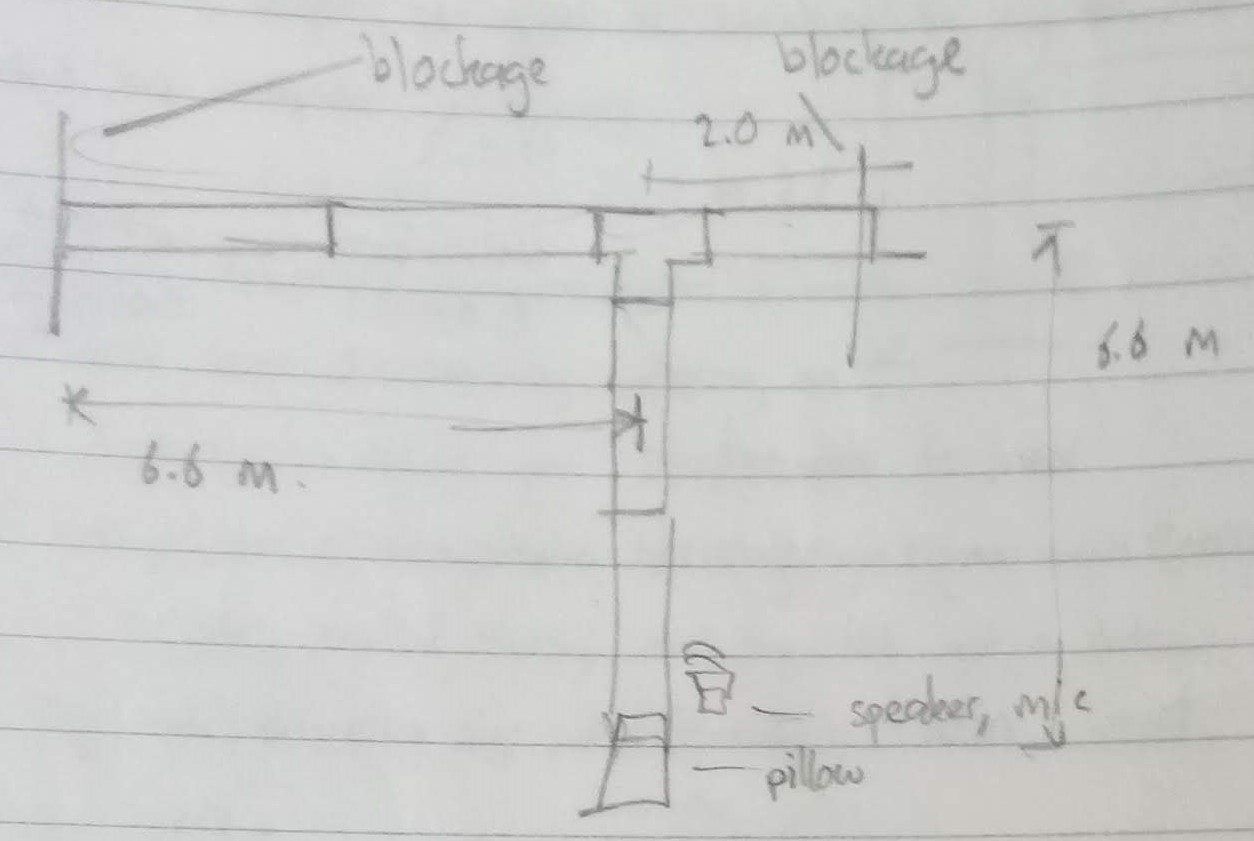 blockage
blockage
2.0 m
6.6 m
6.6 m.
speaker, mic
pillow